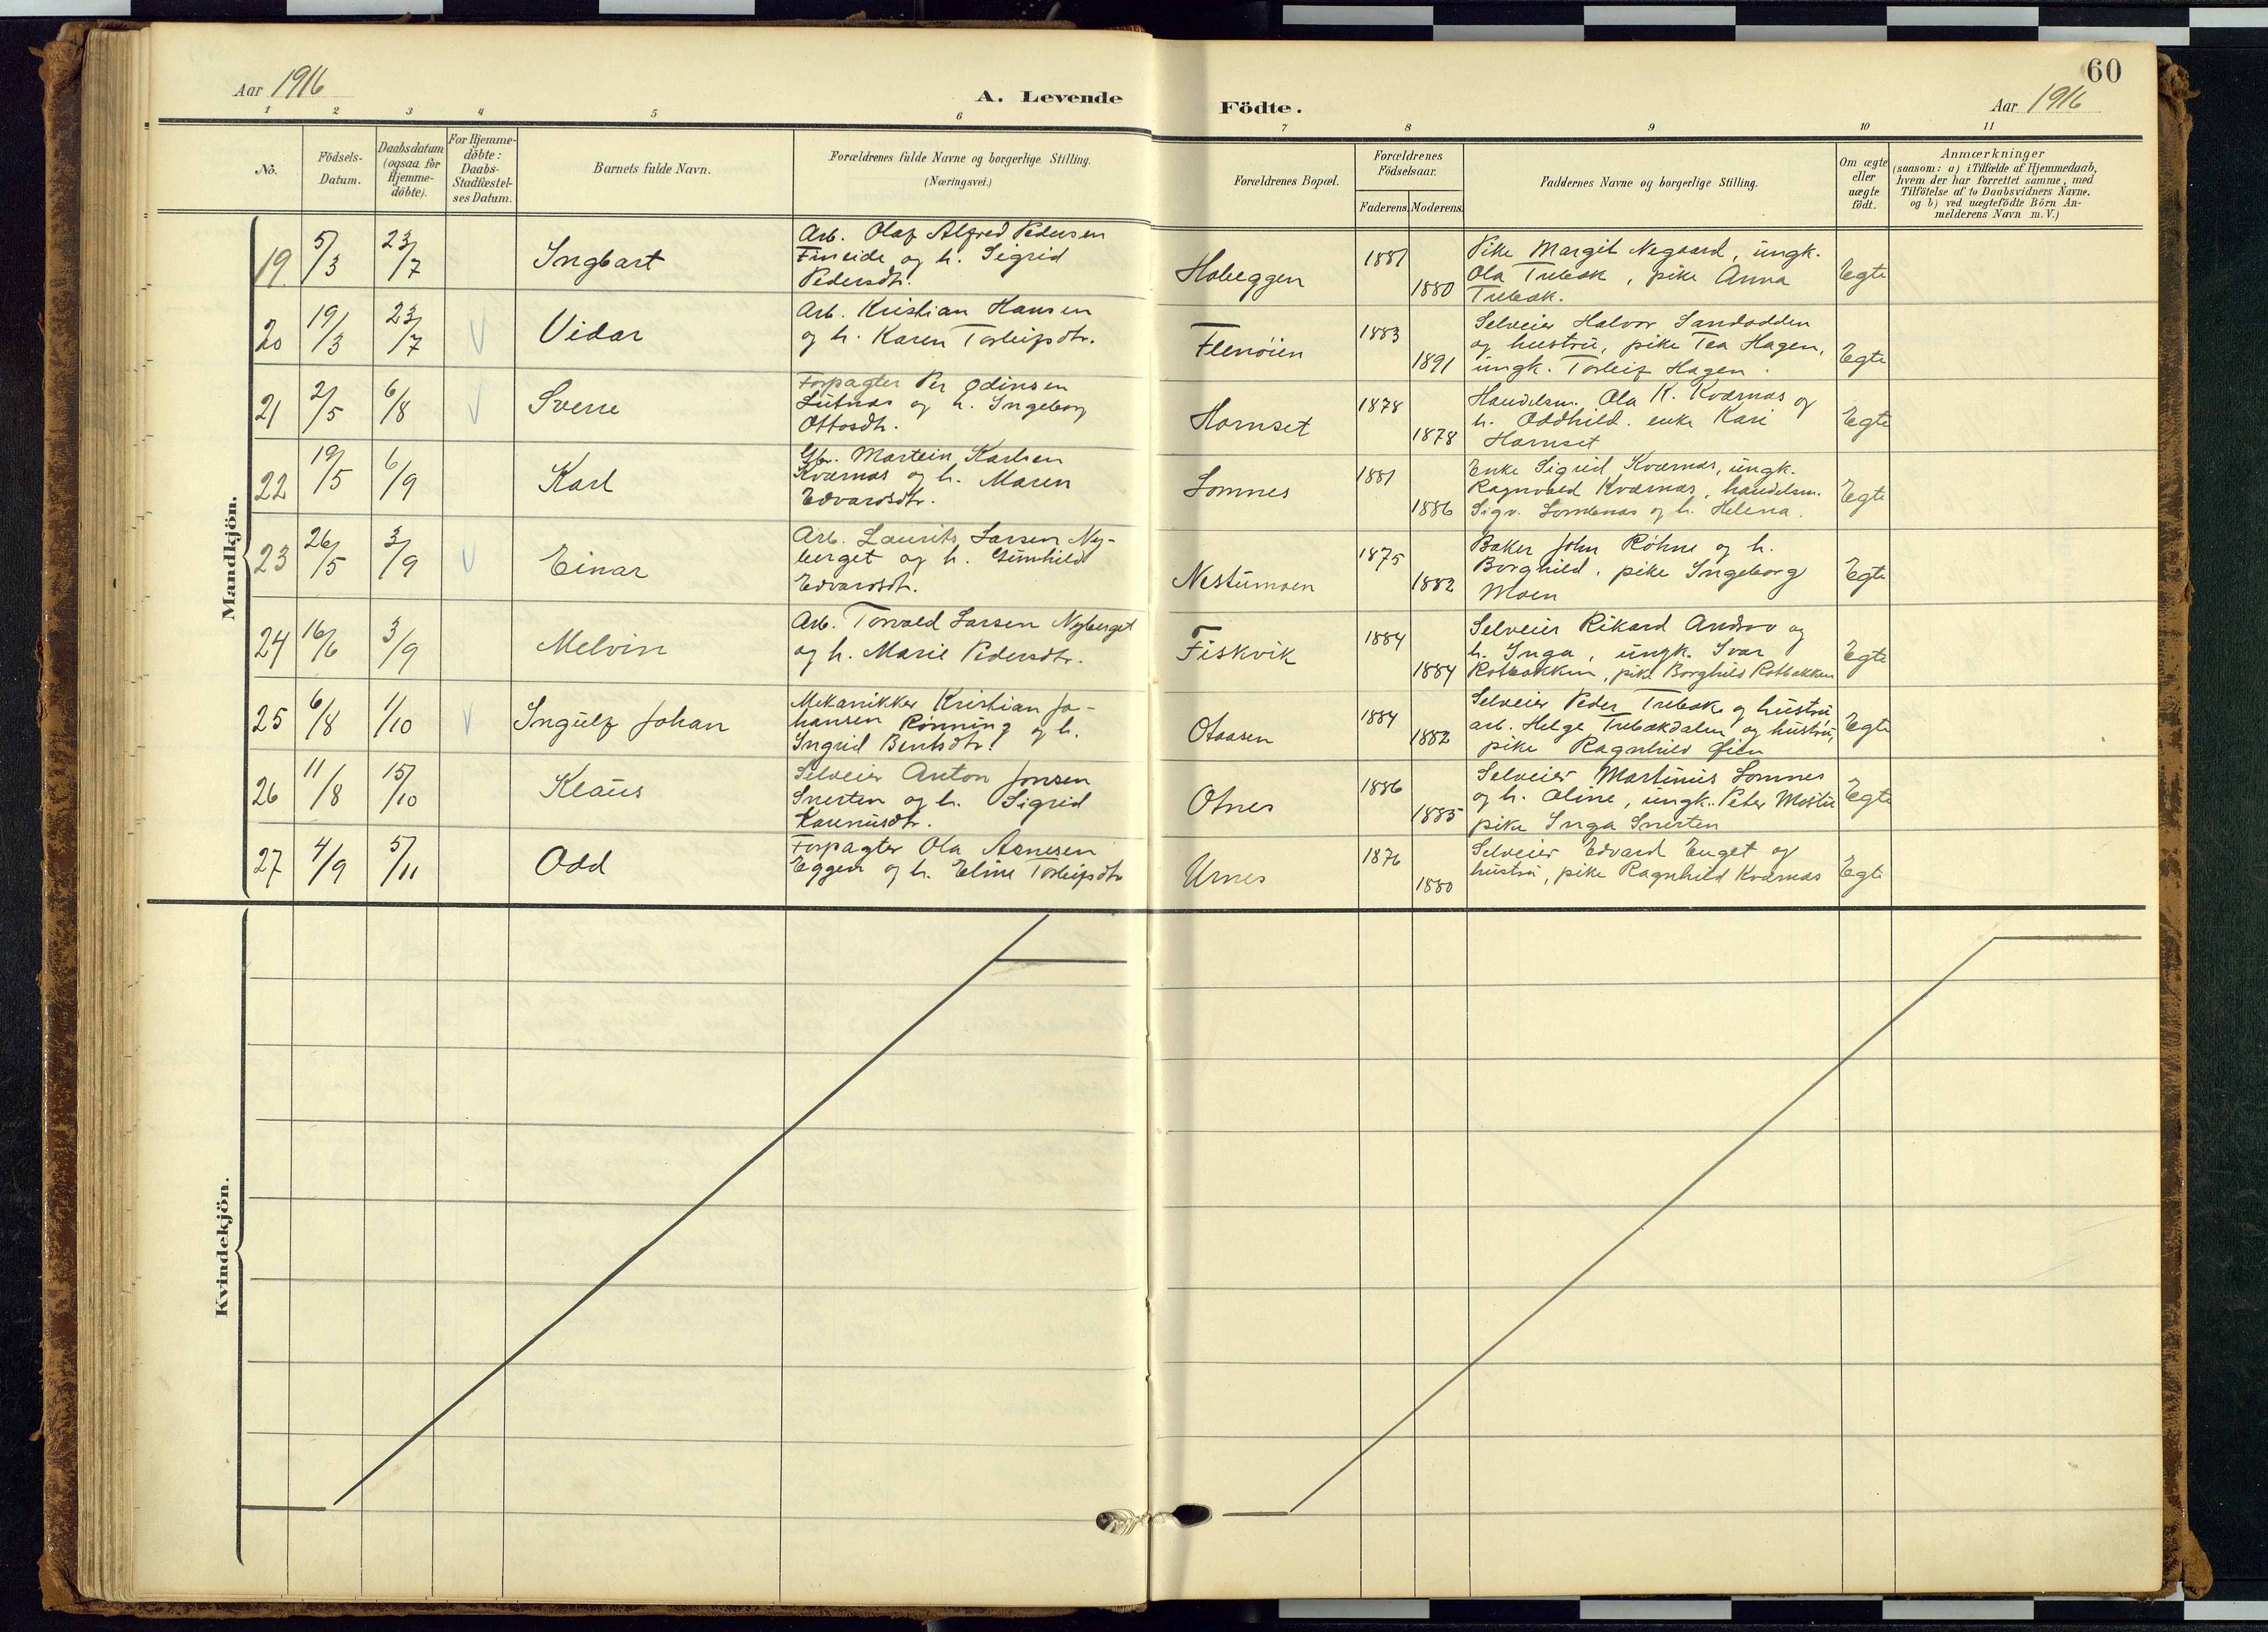 60
Aar 1916
A. Levende
Födte.
Aar 1916
1 2 3 4 5 6 7 8 9 10 11
No.
Födsels-
Datum.
Daabsdatum
(ogsaa for
Hjemme-
döbte).
For Hjemme-
döbte:
Daabs-
Stadfæstel-
ses Datum.
Barnets fulde Navn.
Forældrenes fulde Navne og borgerlige Stilling.
(Næringsvei.)
Forældrenes Bopæl.
Forældrenes
Födselsaar.
Faderens. Moderens.
Faddernes Navne og borgerlige Stilling.
Om ægte
eller
uægte
födt.
Anmærkninger
(saasom: a) i Tilfælde af Hjemmedaab,
hvem der har forrettet samme, med
Tilföielse af to Daabsvidners Navne,
og b) ved uægtefödte Börn An-
melderens Navn m. V.)
Mandkjön.
19. 5/3 23/7 Ingbart
Arb. Olaf Alfred Pedersen
Fineide og h. Sigrid
Pedersdtr.
1881
1880
Pike Margit Negaard, ungk.
Ola Trebæk, pike Anna
Trebæk.
Egte
20 19/3 23/7 Vidar
Arb. Kristian Hansen
og h. Karen Torleifsdtr.
Flenöien
1883
1891
Selveier Halvor Sandodden
og hustru, pike Tea Hagen,
ungk. Torleif Hagen.
Egte
21 2/5 6/8 Sverre
Forpagter Per Odinsen
Lutnæs og h. Ingeborg
Ottosdtr.
Hornset
1878
1878
Handelsm. Ola K. Kværnæs og
h. Oddhild. enke Kari
Hornset
Egte
22 19/5 6/9 Karl
Gbr. Martein Karlsen
Kværnæs og h. Maren
Edvardsdtr.
Lomnes
1881
1886
Enke Sigrid Kværnæs, ungk.
Ragnvald Kværnæs, handelsm.
Sigv. Lomnæs og h. Helena.
Egte
23 26/5 3/9 Einar
Arb. Laurits Larsen Ny-
berget og h. Gunhild
Edvardsdtr.
Nestumoen
1875
1882
Baker John Röhne og h.
Borghild, pike Ingeborg
Moen
Egte
24 16/6 3/9 Melvin
Arb. Torvald Larsen Nyberget
og h. Marie Pedersdtr.
Fiskvik
1884
1884
Selveier Rikard Andraa og
h. Inga, ungk. Ivar
Rotbakken, pike Borghild Rotbakken
Egte
25 6/8 1/10 Ingulf Johan
Mekanikker Kristian Jo-
hansen Rönning og h.
Ingrid Bentsdtr.
Otaasen
1884
1882
Selveier Peder Trebæk og hustru,
arb. Helge Trebækdalen og hustru,
pike Ragnhild Öien
Egte
26 11/8 15/10 Klaus
Selveier Anton Jonsen
Snerten og h. Sigrid
Karenusdtr.
Otnes
1886
1885
Selveier Martinus Lomnes
og h. Oline, ungk. Peter
pike Inga Snerten
Egte
27 4/9 5/11 Odd
Forpagter Ola Arnesen
Eggen og h. Eline Torleifsdtr
Urnes
1876
1880
Selveier Edvard Enget og
hustru, pike Ragnhild Kværnæs
Egte
Kvindekjön.